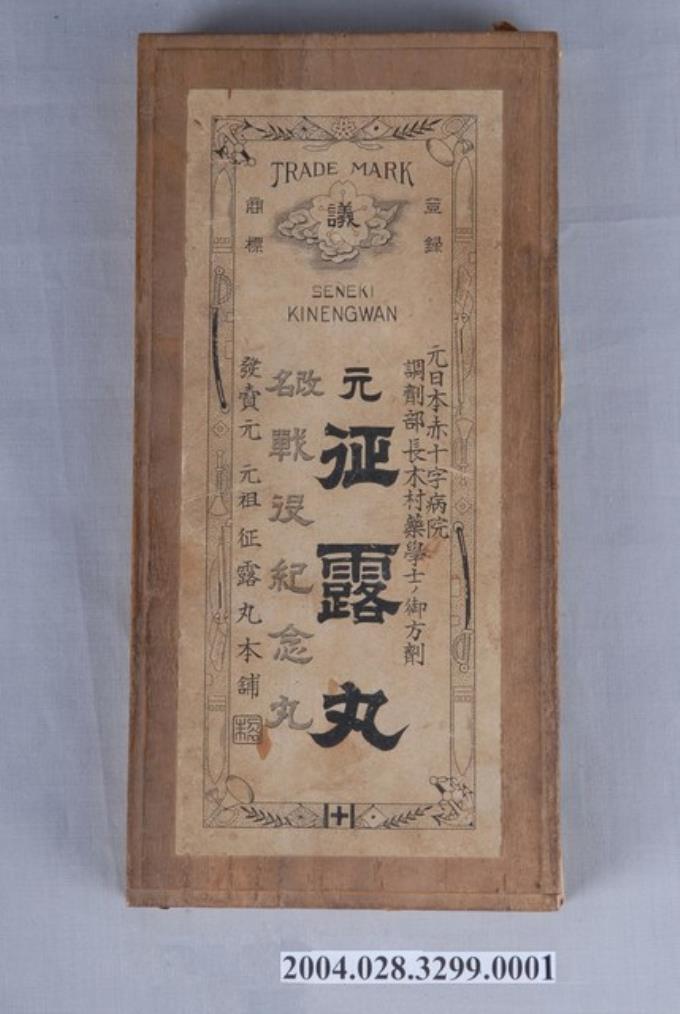 TRADE MARK
登録
議
商標
SENEKI
KINENGWAN
元日本赤十字病院
調劑部長木村藥學士ノ御方劑
元征露丸
改名戰役紀念丸
發賣元 元祖征露丸本舖
2004.028.3299.0001